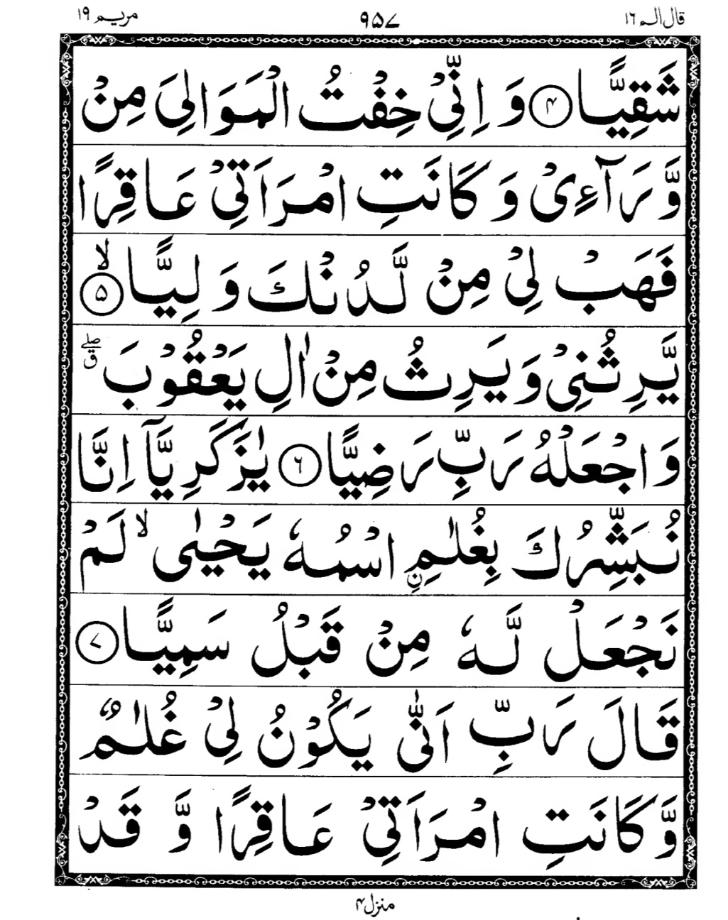 قال الم ١٦ ٩٥٧ مريم ١٩
شَقِيًّا ۝۴ وَ اِنِّيْ خِفْتُ الْمَوَالِيَ مِنْ
وَّرَآءِيْ وَ كَانَتِ امْرَاَتِيْ عَاقِرًا
فَهَبْ لِيْ مِنْ لَّدُنْكَ وَلِيًّا ۙ۝۵
يَّرِثُنِيْ وَيَرِثُ مِنْ اٰلِ يَعْقُوْبَ ۖق
وَ اجْعَلْهُ رَبِّ رَضِيًّا ۝۶ يٰزَكَرِيَّآ اِنَّا
نُبَشِّرُكَ بِغُلٰمِ ِ۟اسْمُهٗ يَحْيٰى ۙ لَمْ
نَجْعَلْ لَّهٗ مِنْ قَبْلُ سَمِيًّا ۝۷
قَالَ رَبِّ اَنّٰى يَكُوْنُ لِيْ غُلٰمٌ
وَّ كَانَتِ امْرَاَتِيْ عَاقِرًا وَّ قَدْ
منزل ۴